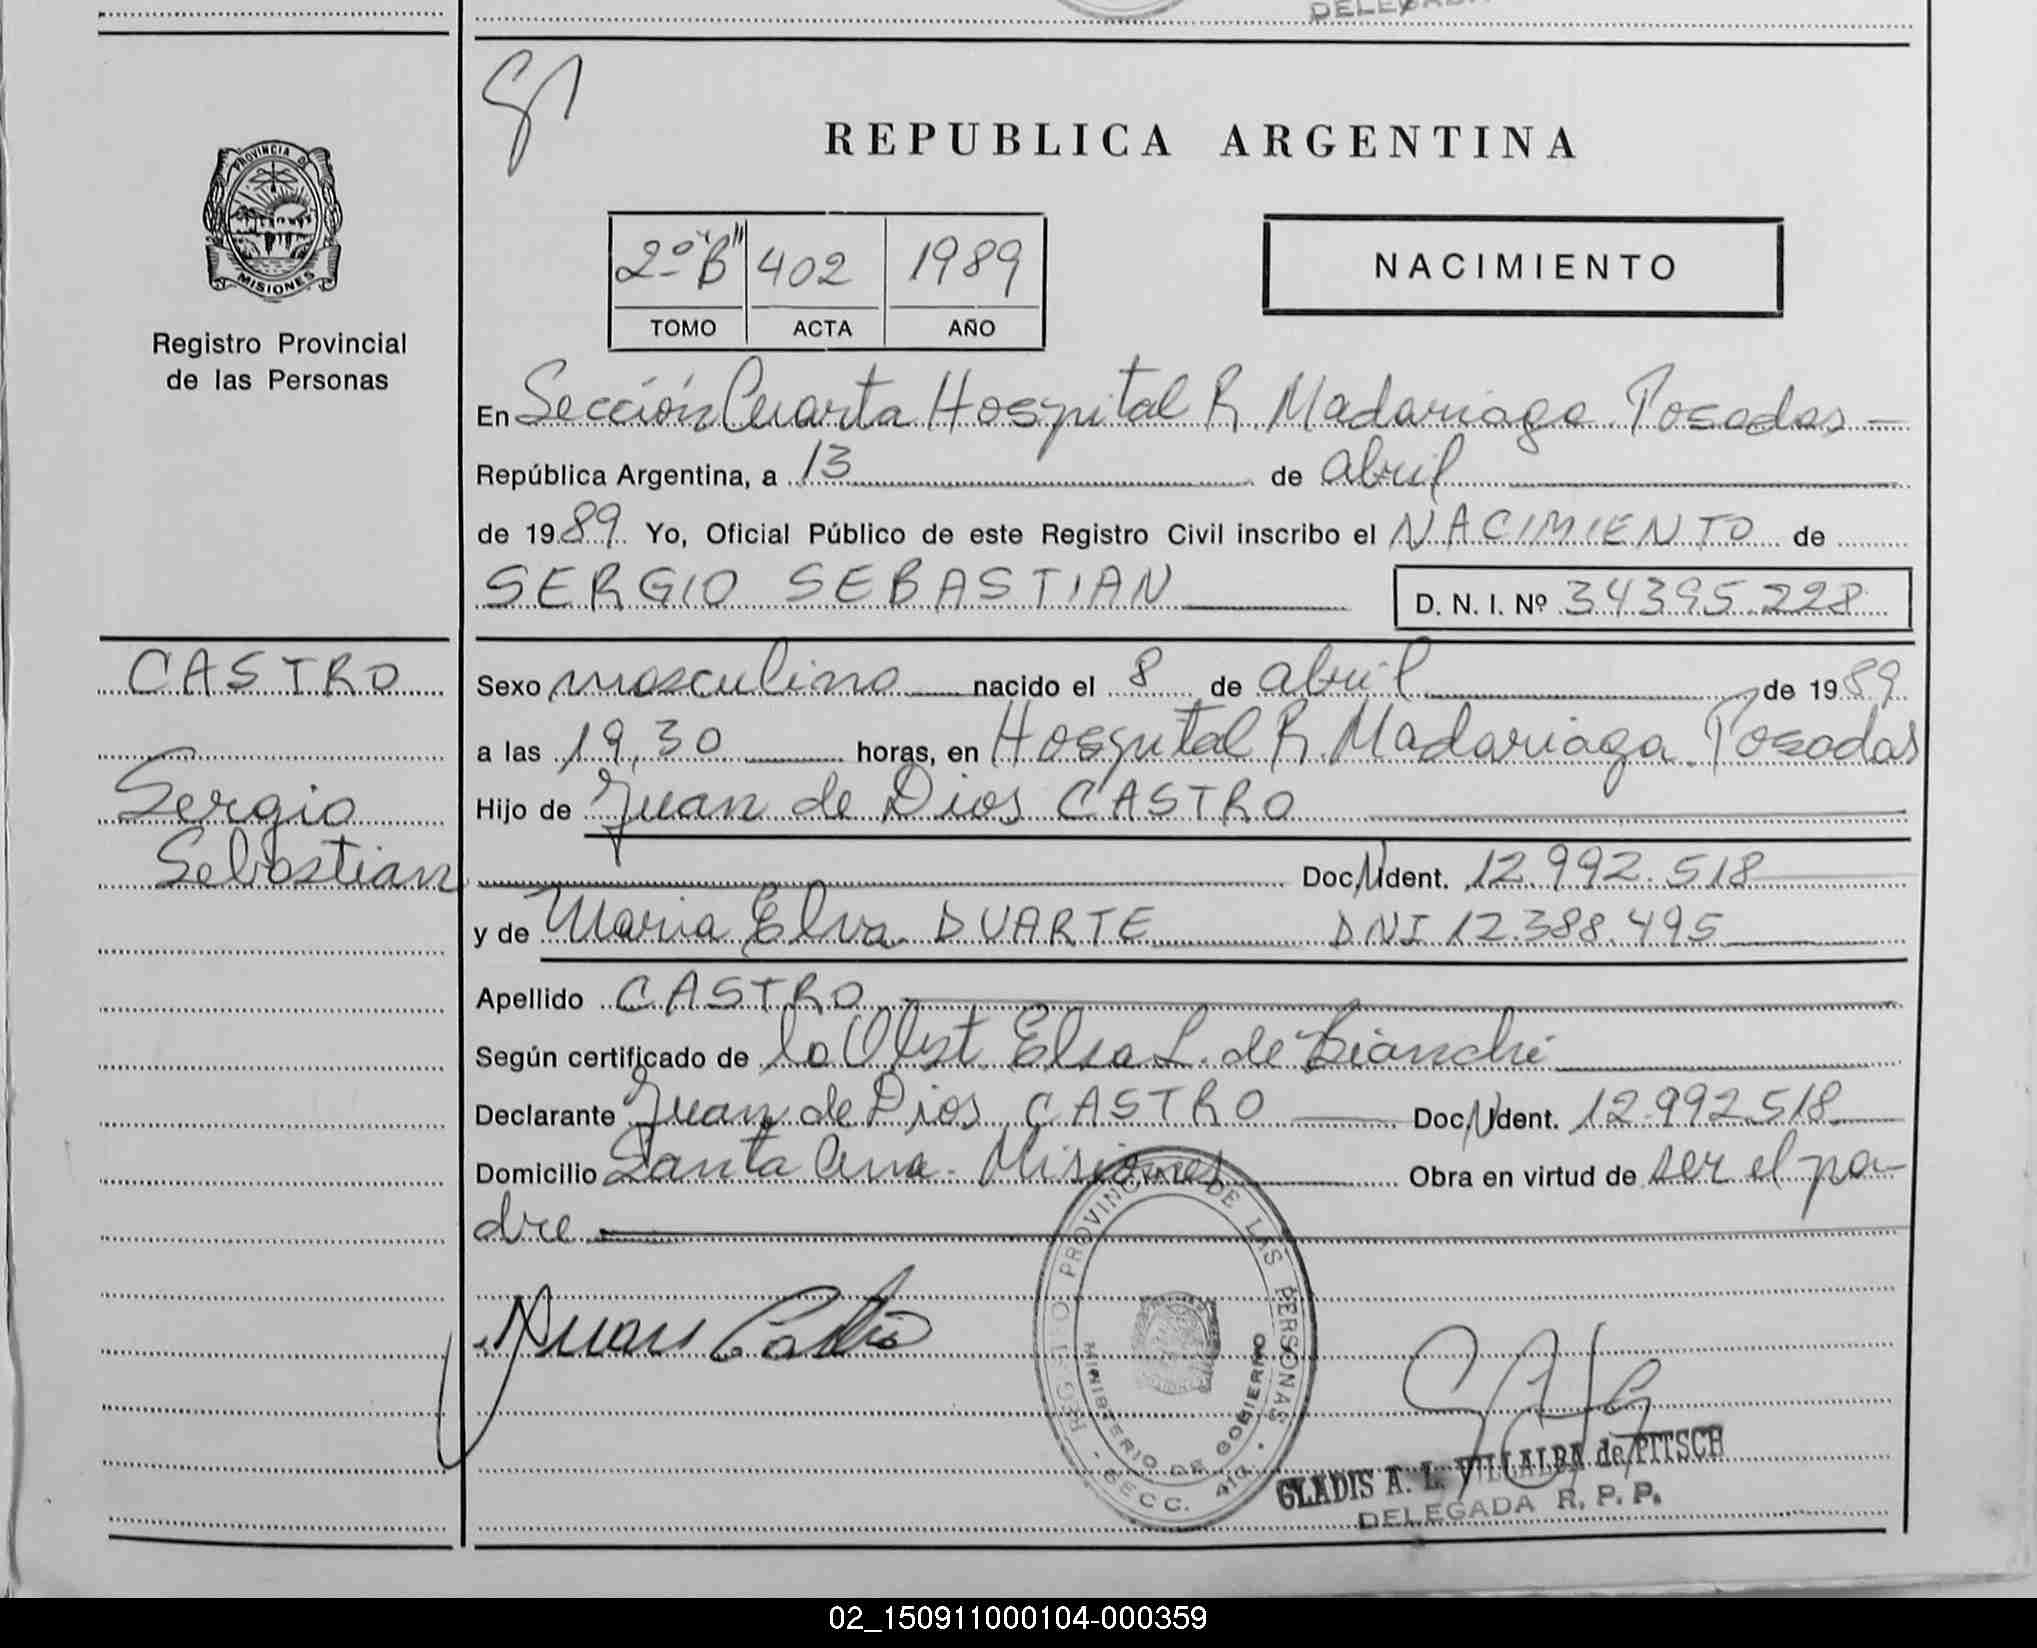 DELEGADA
REPUBLICA ARGENTINA
PROVINCIA D
MISIONES
Registro Provincial
de las Personas
2º "B" 402 1989
TOMO ACTA AÑO
NACIMIENTO
En Sección Cuarta Hospital R. Madariaga. Posadas
República Argentina, a 13 de abril
de 1989. Yo, Oficial Público de este Registro Civil inscribo el NACIMIENTO de
SERGIO SEBASTIAN D. N. I. Nº 34395.228
CASTRO
Sergio
Sebastian
Sexo masculino nacido el 8 de abril de 1989
a las 19,30 horas, en Hospital R. Madariaga. Posadas
Hijo de Juan de Dios CASTRO
Doc. N Ident. 12.992.518
y de Maria Elva DUARTE DNI 12.388.495
Apellido CASTRO
Según certificado de la Obst. Elsa L. de Bianchi
Declarante Juan de Dios CASTRO Doc. N Ident. 12.992.518
Domicilio Santa Ana. Misiones Obra en virtud de ser el pa-
dre
Juan Castro
REGISTRO PROVINCIAL DE LAS PERSONAS
MINISTERIO DE GOBIERNO
SECC. 4ta.
GLADIS A. L. VILLALBA de PITSCH
DELEGADA R. P. P.
02_150911000104-000359